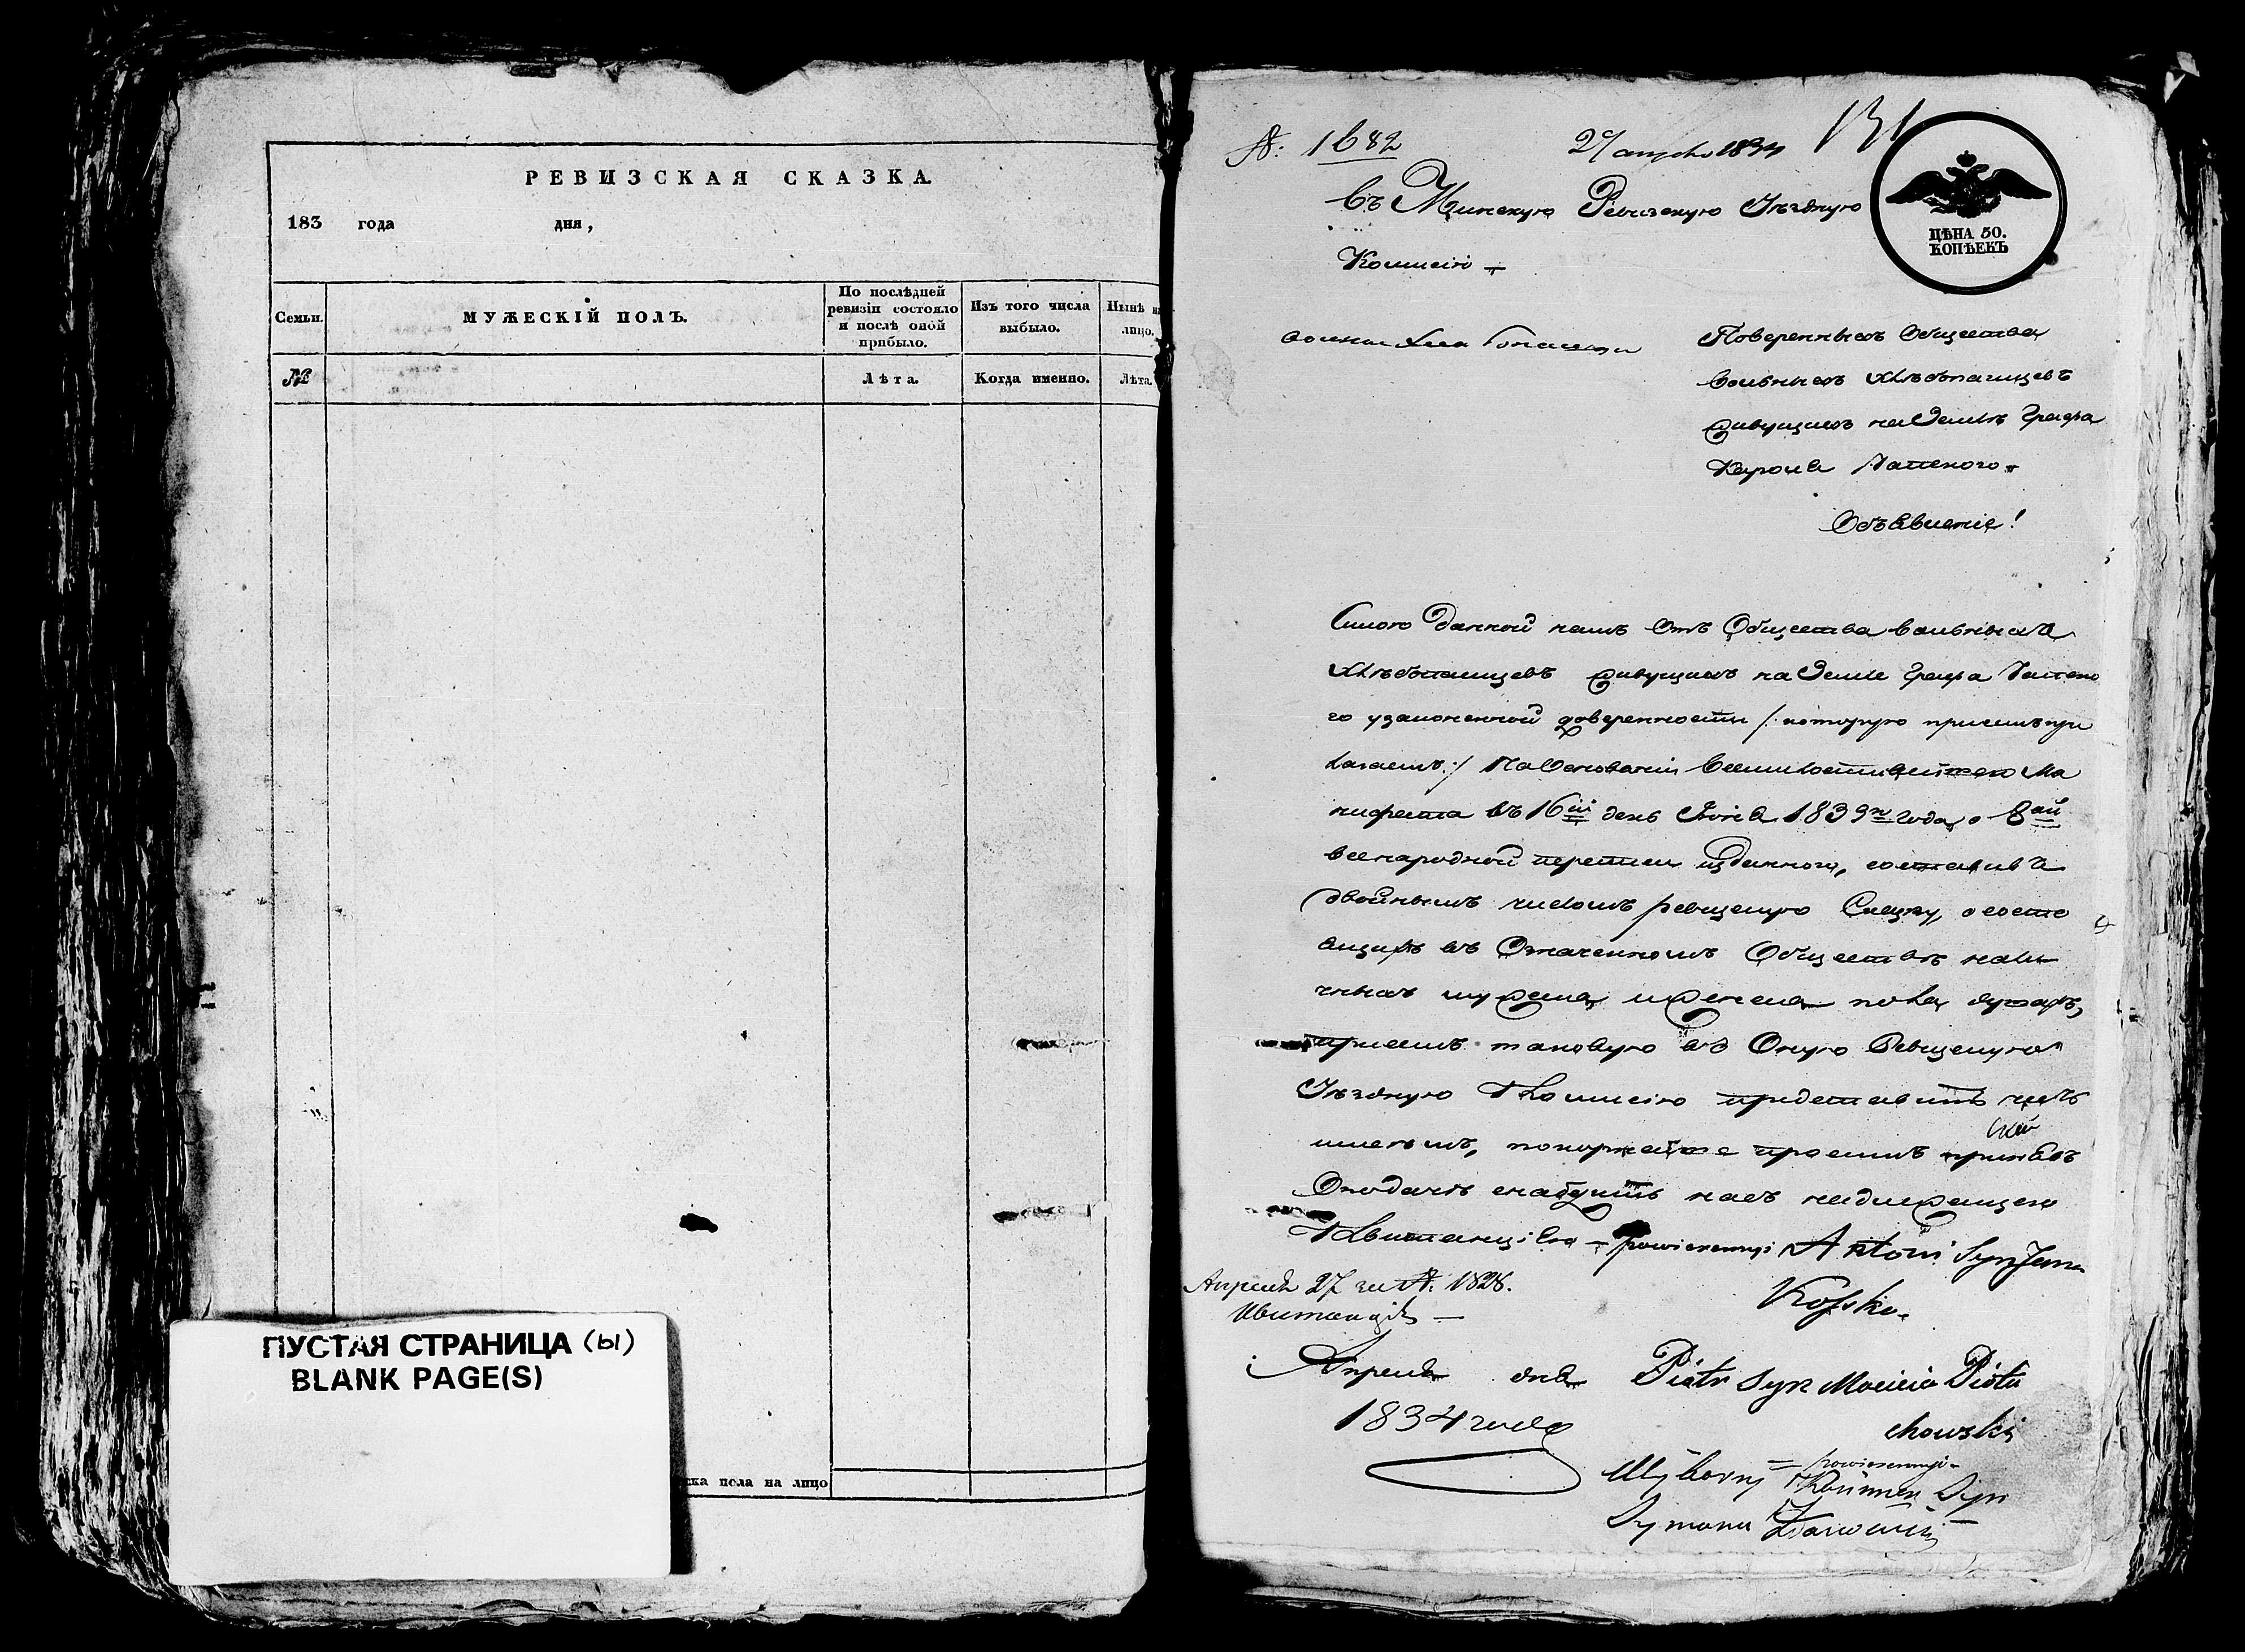 РЕВИЗСКАЯ СКАЗКА.
183 года дня,
Семьи.
МУЖЕСКІЙ ПОЛЪ.
По послѣдней
ревизіи состояло
и послѣ оной
прибыло.
Изъ того числа
выбыло.
Нынѣ
лицо.
№
Лѣта.
Когда именно.
Лѣта
ПУСТАЯ СТРАНИЦА (Ы)
BLANK PAGE(S)
ска пола на лицо
№: 1682
27 1834
131
ЦѢНА 50.
КОПѢЕКЪ
Въ Минскую Ревизскую Уѣздную
Комисію
Повѣренныхъ Общества
Вольныхъ Хлѣбопашцевъ
Живущихъ на Землѣ Графа
Кароля
Объявленіе!
Силою данной намъ Отъ Общества вольныхъ
Хлѣбопашцевъ живущихъ на Земле Графа
го узаконенной доверенности /: которую присемъ при
лагаемъ :/ На Основаніи Всемилостивейшего Ма
нифеста въ 16й день Іюня 1833го года о 8ой
всенародной переписи изданного, составивъ
двойнымъ числомъ ревизскую Сказку, о состо
ящихъ въ Означенномъ Обществѣ нали
чныхъ мужеска и женска пола душахъ,
присемъ таковую въ Оную Ревизскую
Уѣздную Комисію представить честь
имеемъ, покорнейше просимъ принявъ
О подачѣ снабдить насъ надлежащею
Квитанціею — powierennyi Antoni Syn Jana
Kossko.
Апреля 27 за №: 1828.
Квитанція —
Апреля дня
1834 года
Piotr Syn Macieia Piotu
chowski
powierennyi
Syn
Symona